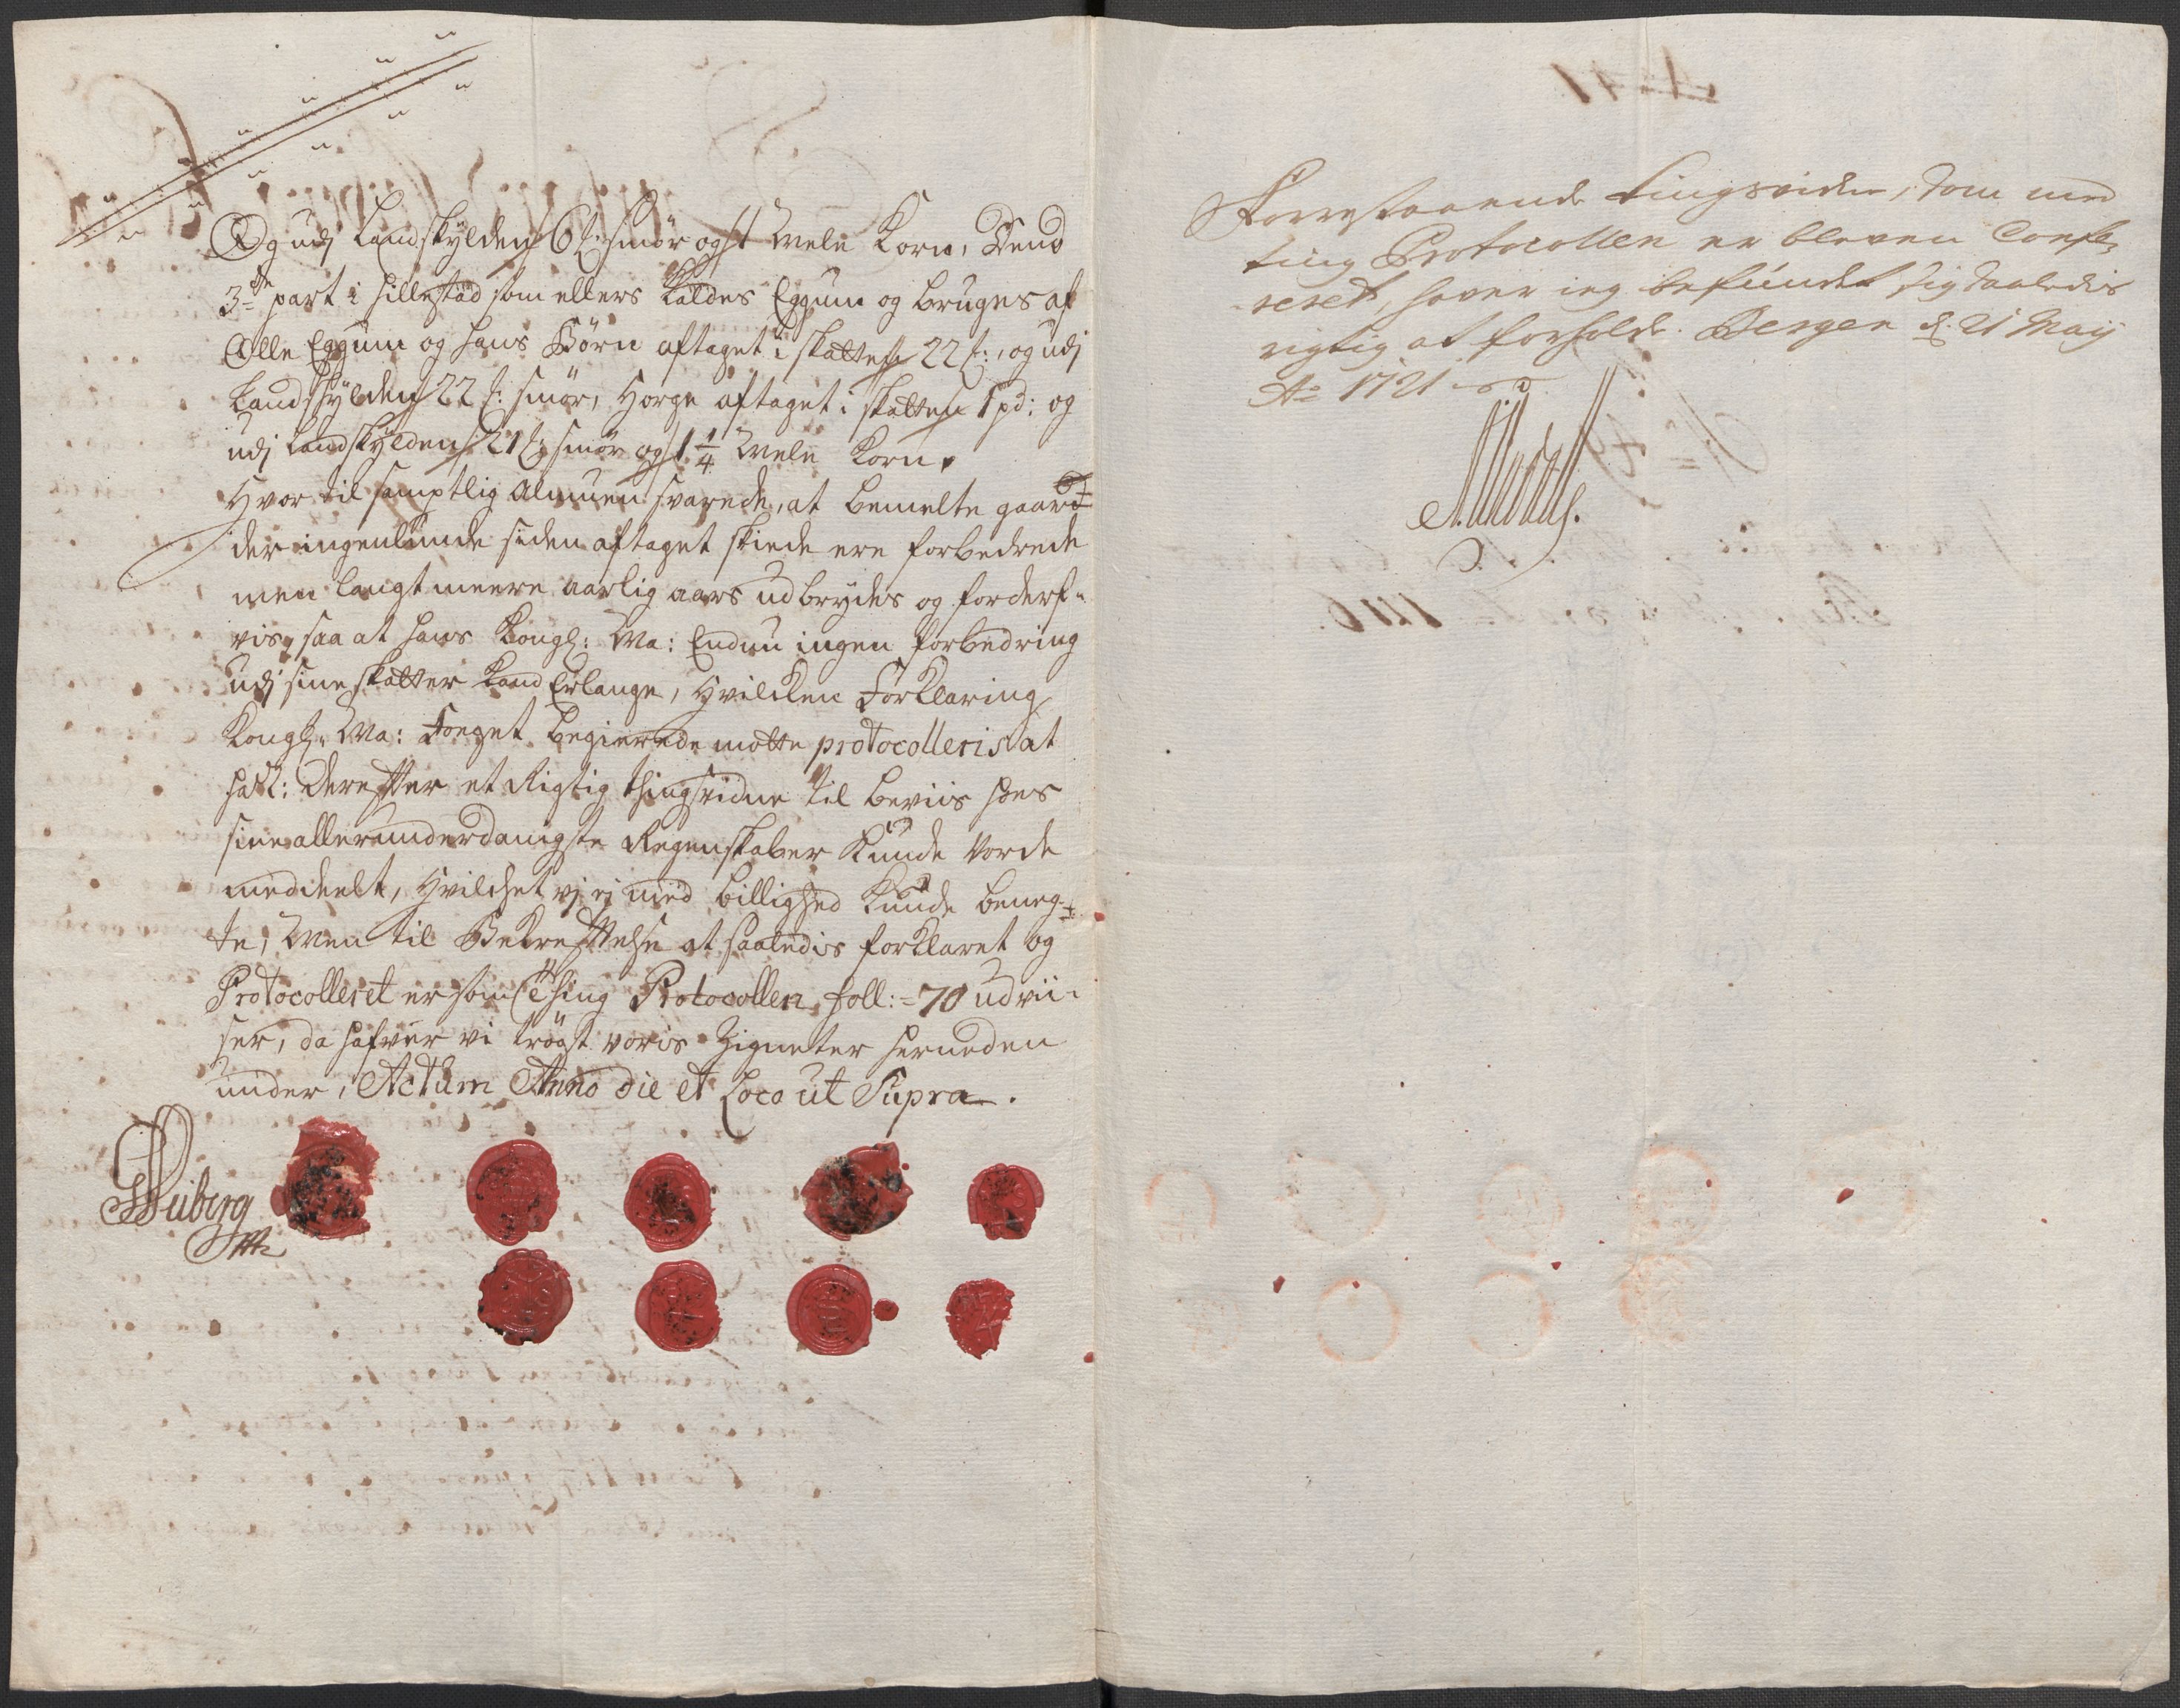 Og udj Landskylden 6 ℔: smör og 1 Mele Korn, Dend
3de part i Hillestad som ellers kaldes Eggum og bruges af
Olle Eggum og hans Börn aftaget i skatten 22 ℔:, og udj
Landskylden 22 ℔: smör, Horge aftaget i skatten 1 pd: og
udj Landskylden 21 ℔: smör og 1 1/4 Mele Korn.
Hvor til samptlig Almuen svarede, at bemelte gaar¬
der ingenlunde siden aftaget skiede ere forbedrede
men langt meere aarlig aars udbrydes og forderf¬
vis, saa at hans Kongl: Ma: Endnu ingen forbedring
udj sine skatter kand Erlange, Hvilcken Forklaring
Kongl: Ma: Foeget begierede motte protocolleris at
hand: derefter et Rigtig thingsvidne til beviis hos
sine allerunderdanigste Regenskaber kunde vorde
meddeelt, Hvilchet vj ej med billighed kunde beneg¬
te, Men til Bekreftelse at saaledis forklaret og
Protocolleret er som thing Protocollen foll: 70 udvii¬
ser, da hafver vi trögt voris Zigneter herneden
under, Actum Anno die et Loco ut Supra.
Wiberg
Mpp
Forrestaaende tingsvidne, som med
ting Protocollen er bleven Confe¬
reret, haver ieg befundet sig saaledis
rigtig at forholde. Bergen d. 21 Maij
Ao 1721